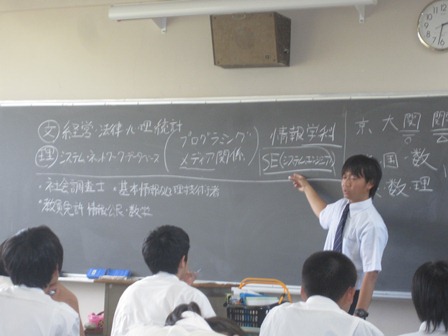 文 経営・法律 心理・統計
理 システム・ネットワーク・データベース
プログラミング
メディア関係
情報学科
SE(システムエンジニア)
・社会調査士 ・基本情報処理技術者
・教員免許 情報・公民・数学
京大 関
国・数
数理